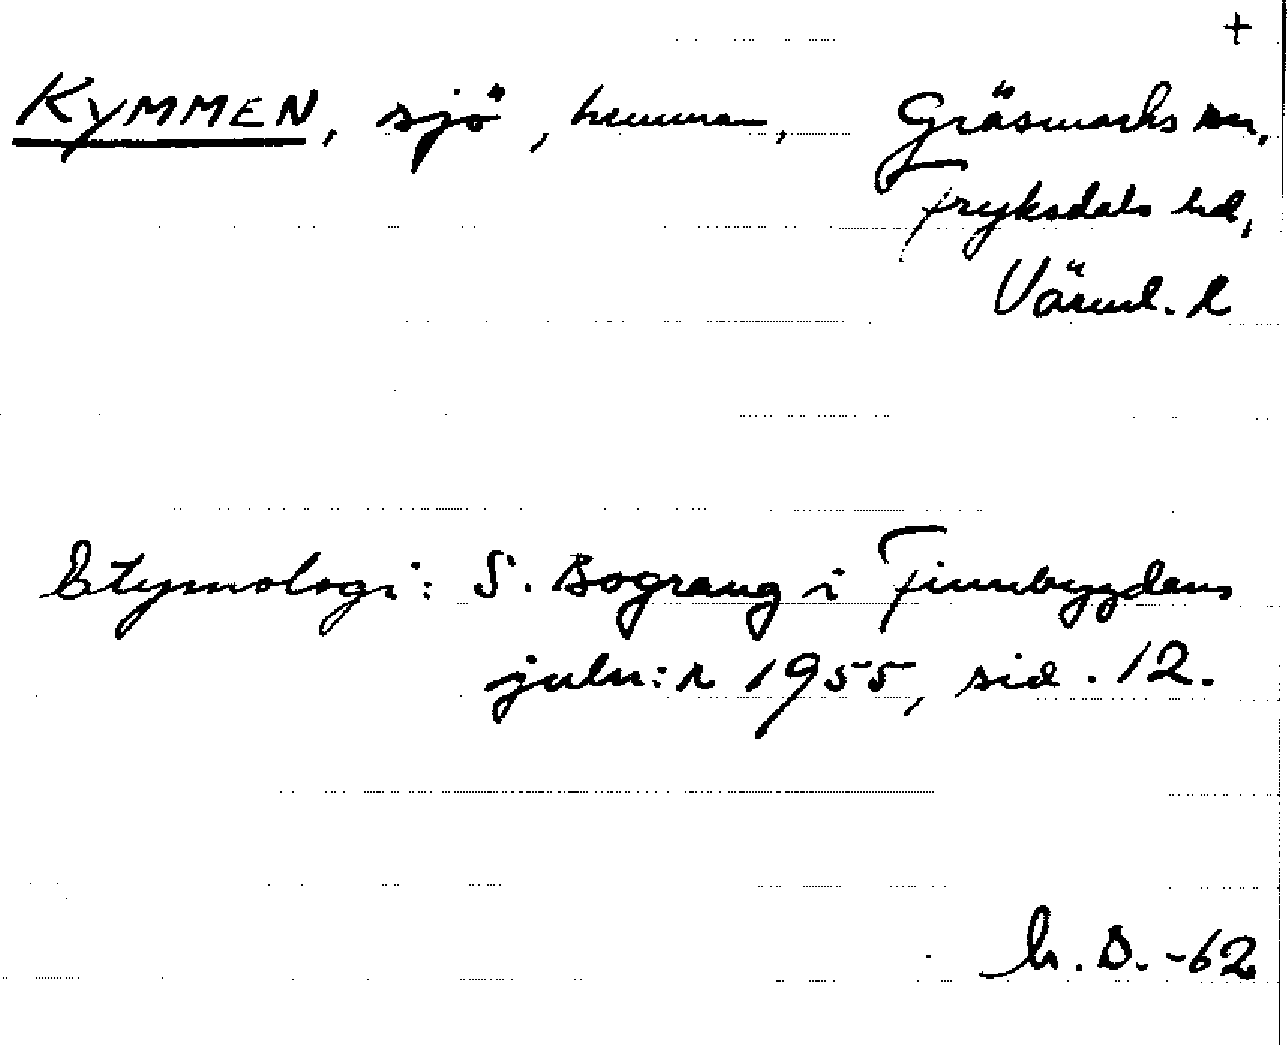 +
KYMMEN, sjö, hemman, Gräsmarks sn,
Fryksdals hd,
Värml. l
Etymologi: S. Bograng i Finnbygdens
juln:r 1955, sid. 12.
D. -62